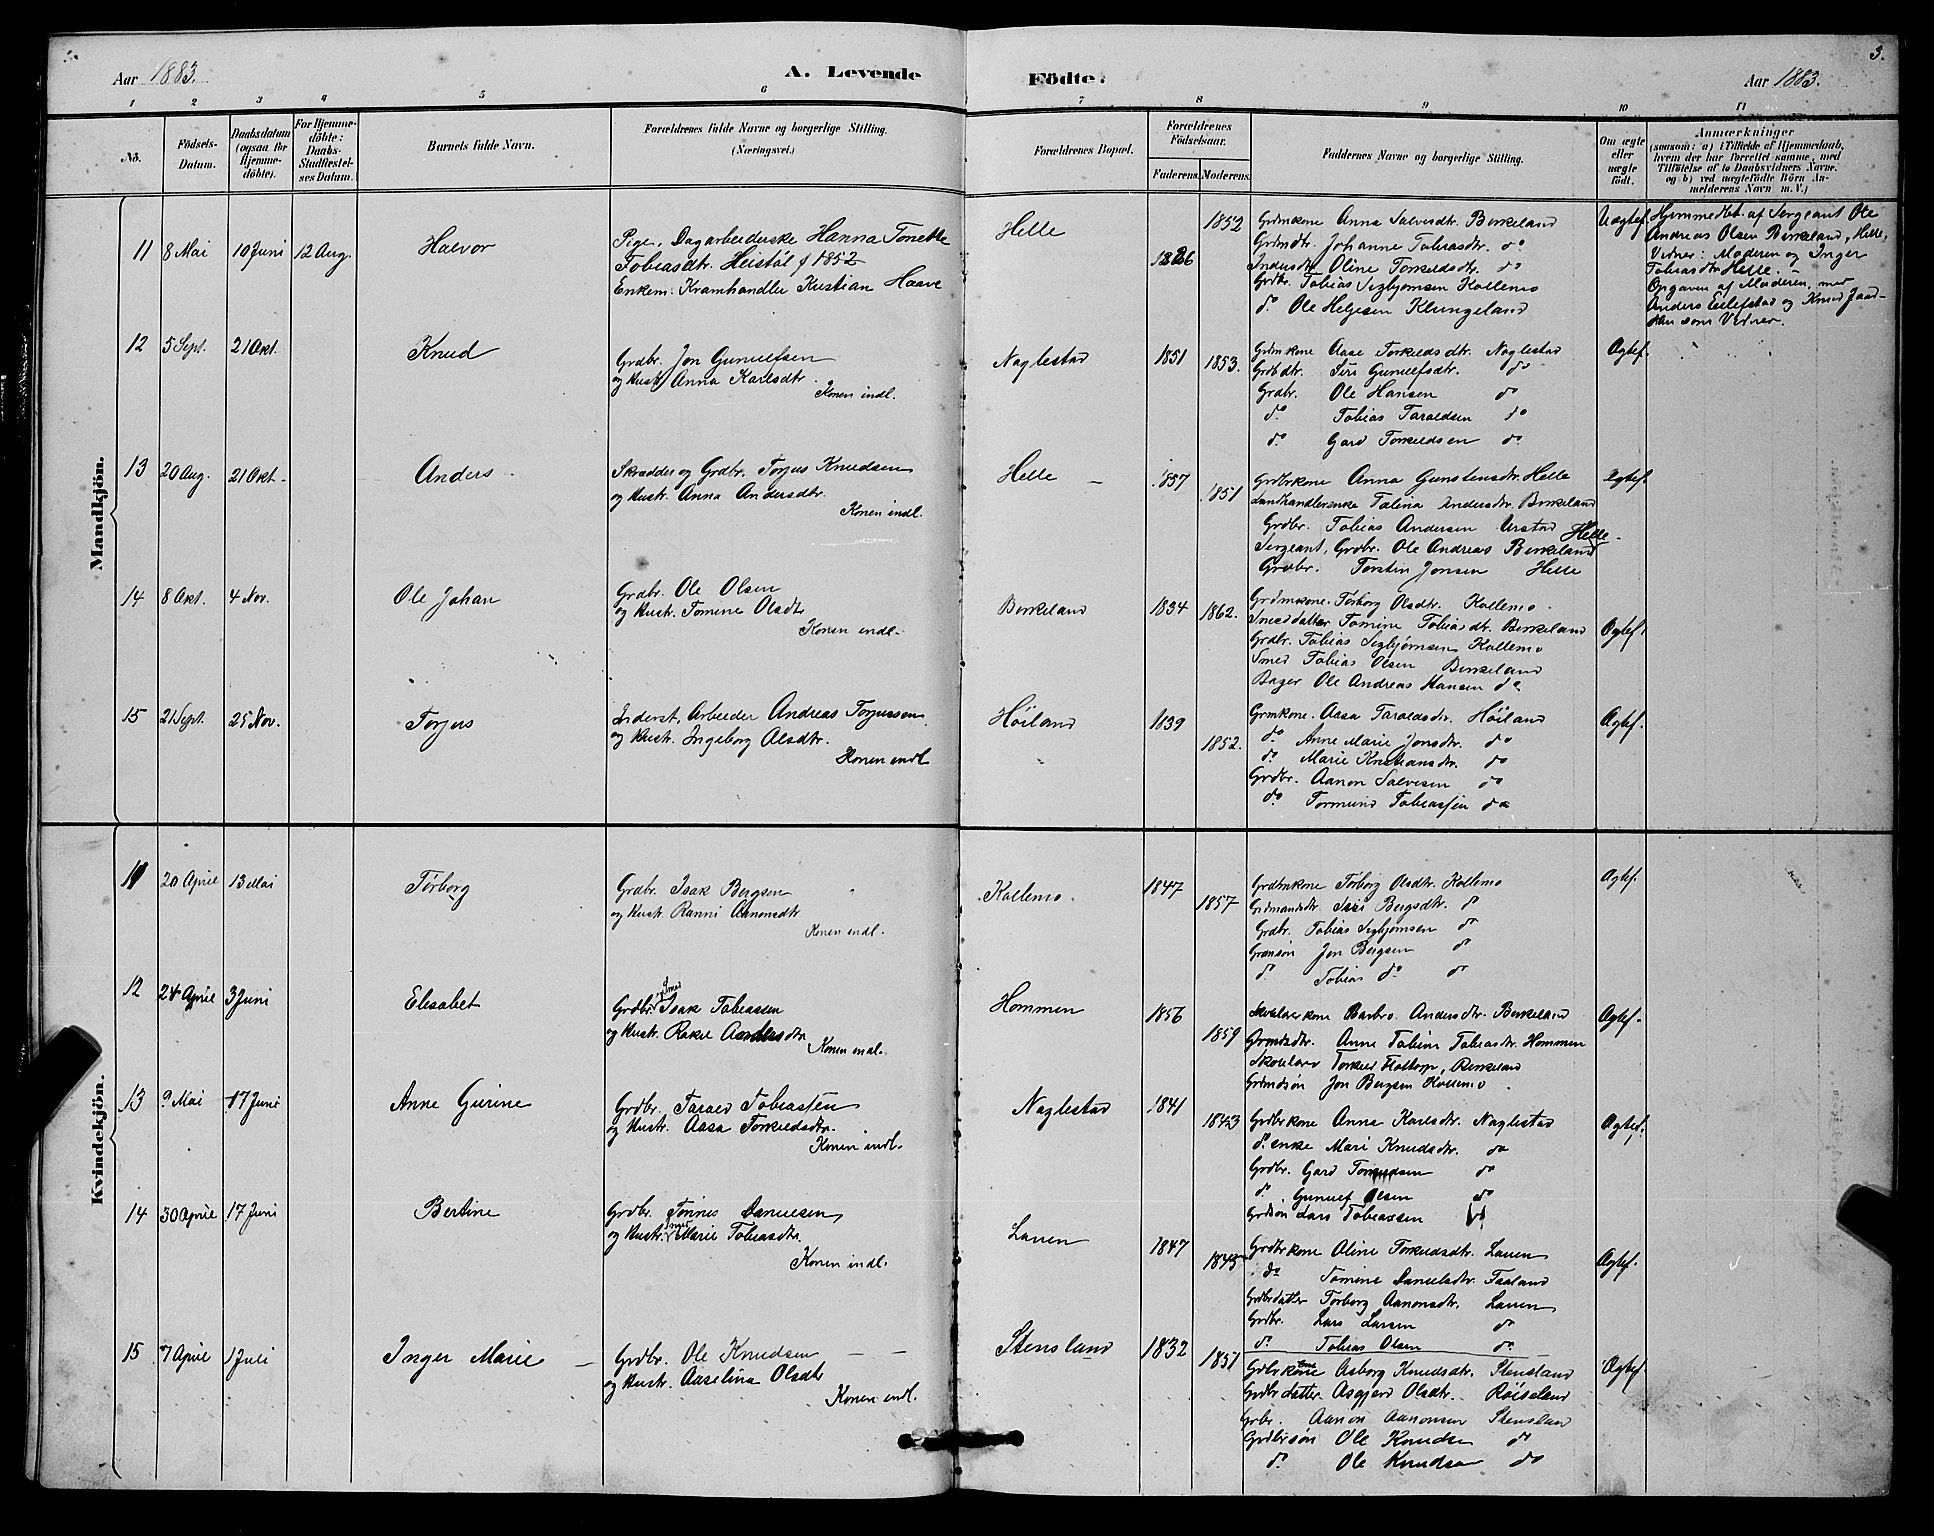 3.
Aar 1883.
A. Levende
Födte.
Aar 1883.
1 2 3 4 5 6 7 8 9 10 11
No.
Födsels-
Datum.
Daabsdatum
(ogsaa for
Hjemme-
döbte).
For Hjemme-
döbte:
Daabs-
Stadfæstel-
ses Datum.
Barnets fulde Navn.
Forældrenes fulde Navne og borgerlige Stilling.
(Næringsvei.)
Forældrenes Bopæl.
Forældrenes
Födselsaar.
Faderens. Moderens.
Faddernes Navne og borgerlige Stilling.
Om ægte
eller
uægte
födt.
Anmærkninger
(saasom: a) i Tilfælde af Hjemmedaab,
hvem der har forrettet samme, med
Tilföielse af to Daabsvidners Navne.
og b) ved uægtefödte Börn An-
melderens Navn m. V.)
Mandkjön.
11 8 Mai 10 Juni 12 Aug. Halvor
Pige, Dagarbeiderske Hanna Tonette
Tobiasdtr. Heistöl f 1852
Enkem: Kramhandler Kristian Haave
Helle
1826 1852
Grdmkone Anna Salvesdtr. Birkeland
Grdmdtr. Johanne Tobiasdtr. do
Indersdtr Oline Torkildsdtr. do
Grdbr. Tobias Sigbjørnsen Kollemo
do. Ole Helgesen Klungeland
Uægtef.
Hjemmedbt. af Sergeant Ole
Andreas Olsen Birkeland, Helle,
Vidner: Moderen og Inger
Tobiasdtr Helle. –
Opgaven af Moderen, med
Anders Eilefstad og Knud Jaad-
dan som Vidner.
12 5 Sept. 21 Okt. Knud
Grdbr. Jon Gunulfsen
og Hustr. Anna Karlsdtr.
Konen indl.
Naglestad
1851 1853.
Grdmkone Aase Torkildsdtr. Naglestad
Grdbdtr. Siri Gunulfsdtr. do
Grdbr. Ole Hansen do
do. Tobias Taraldsen do
do. Gard Torkildsen do
Ægtef.
13 20 Aug. 21 Okt. Anders
Skrædder og Grdbr. Torjus Knudsen
og Hustr. Anna Andersdtr.
Konen indl.
Helle
1857 1851
Grdbrkone Anna Gunstensdtr. Helle
Landhandlerenke Talina Andersdtr. Birkeland
Grdbr. Tobias Andersen Urstad
Sergeant, Grdbr. Ole Andreas Birkeland Helle
Grdbr. Torstin Jonsen Helle
Ægtef.
14 8 Okt. 4 Nov. Ole Johan
Grdbr. Ole Olsen
og Hustr. Tomine Olsdtr
Konen indl.
Birkeland
1834 1862.
Grdmkone. Torborg Olsdtr. Kollemo
Smedsdatter Tomine Tobiasdtr. Birkeland
Grdbr. Tobias Sigbjørnsen Kollemo
Smed Tobias Olsen Birkeland
Bager Ole Andreas Hansen do.
Ægtef.
15 21 Sept. 25 Nov. Torjus
Inderst, Arbeider Andreas Torjussen
og Hustr. Ingeborg Olsdtr.
Konen indl
Höiland
1839 1852.
Grmkone. Aasa Taraldsdtr. Höiland
do. Anne Marie Jonsdtr. do
do. Marie Kristiansdtr. do
Grdbr. Aanon Salvesen do
do. Tormund Tobiassen do
Ægtef.
Kvindekjön.
11 20 April 13 Mai Törborg
Grdbr. Isak Bergsen
og Hustr. Ranni Aanonsdtr
Konen indl.
Kollemo.
1847 1857
Grdmkone Törborg Olsdtr. Kollemo
Grdmandsdtr. Siri Bergsdtr. do
Grdbr. Tobias Sigbjørnsen do
Grdmsön Jon Bergsen do
do. Tobias do do
Ægtef.
12 24 April 3 Juni Elisabet
Grdbr. og Smed Isak Tobiassen
og Hustr. Rakel Aandersdtr
Konen indl.
Hommen
1856 1859
Skolelærerkone Barbro Andersdtr. Birkeland
Grdmdsdtr. Anne Tobine Tobiasdtr. Hommen
Skolelærer Torkel Flottorp, Birkeland
Grdmdsön Jon Bergsen Kollemo.
Ægtef.
13 9 Mai 17 Juni Anne Gurine
Grdbr. Tarald Tobiassen
og Hustr. Aasa Torkildsdtr.
Konen indl.
Naglestad
1841 1843
Grdbrkone Anna Karlsdtr. Naglestad
do. enke Mari Knudsdtr. do
Grdbr. Gard Torkildsen do
do. Gunulf Olsen do
Grdsön Lars Tobiassen do
Ægtef.
14 30 April 17 Juni Bertine
Grdbr. Tönnes Danielsen
og Hustr. Marie Tobiasdtr.
Konen indl.
Lauen
1847 1845
Grdbrkone Oline Torkildsdtr. Lauen
do Tomine Danielsdtr. Faaland
Grdbrdatter Törborg Aanonsdtr. Lauen
Grdbr. Lars Larsen do
do. Tobias Olsen do
Ægtef.
15 7 April 1 Juli Inger Marie
Grdbr. Ole Knudsen
og Hustr. Aaselina Olsdtr
Konen indl.
Stensland
1832 1851
Grdbrkone Aasborg Knudsdtr. Stensland
Grdbrdatter Asgjerd Olsdtr. Röiseland
Grbr. Aanon Aanonsen Stensland
Grdbrsön Ole Knudsen do
do. Ole Knudsen do
Ægtef.